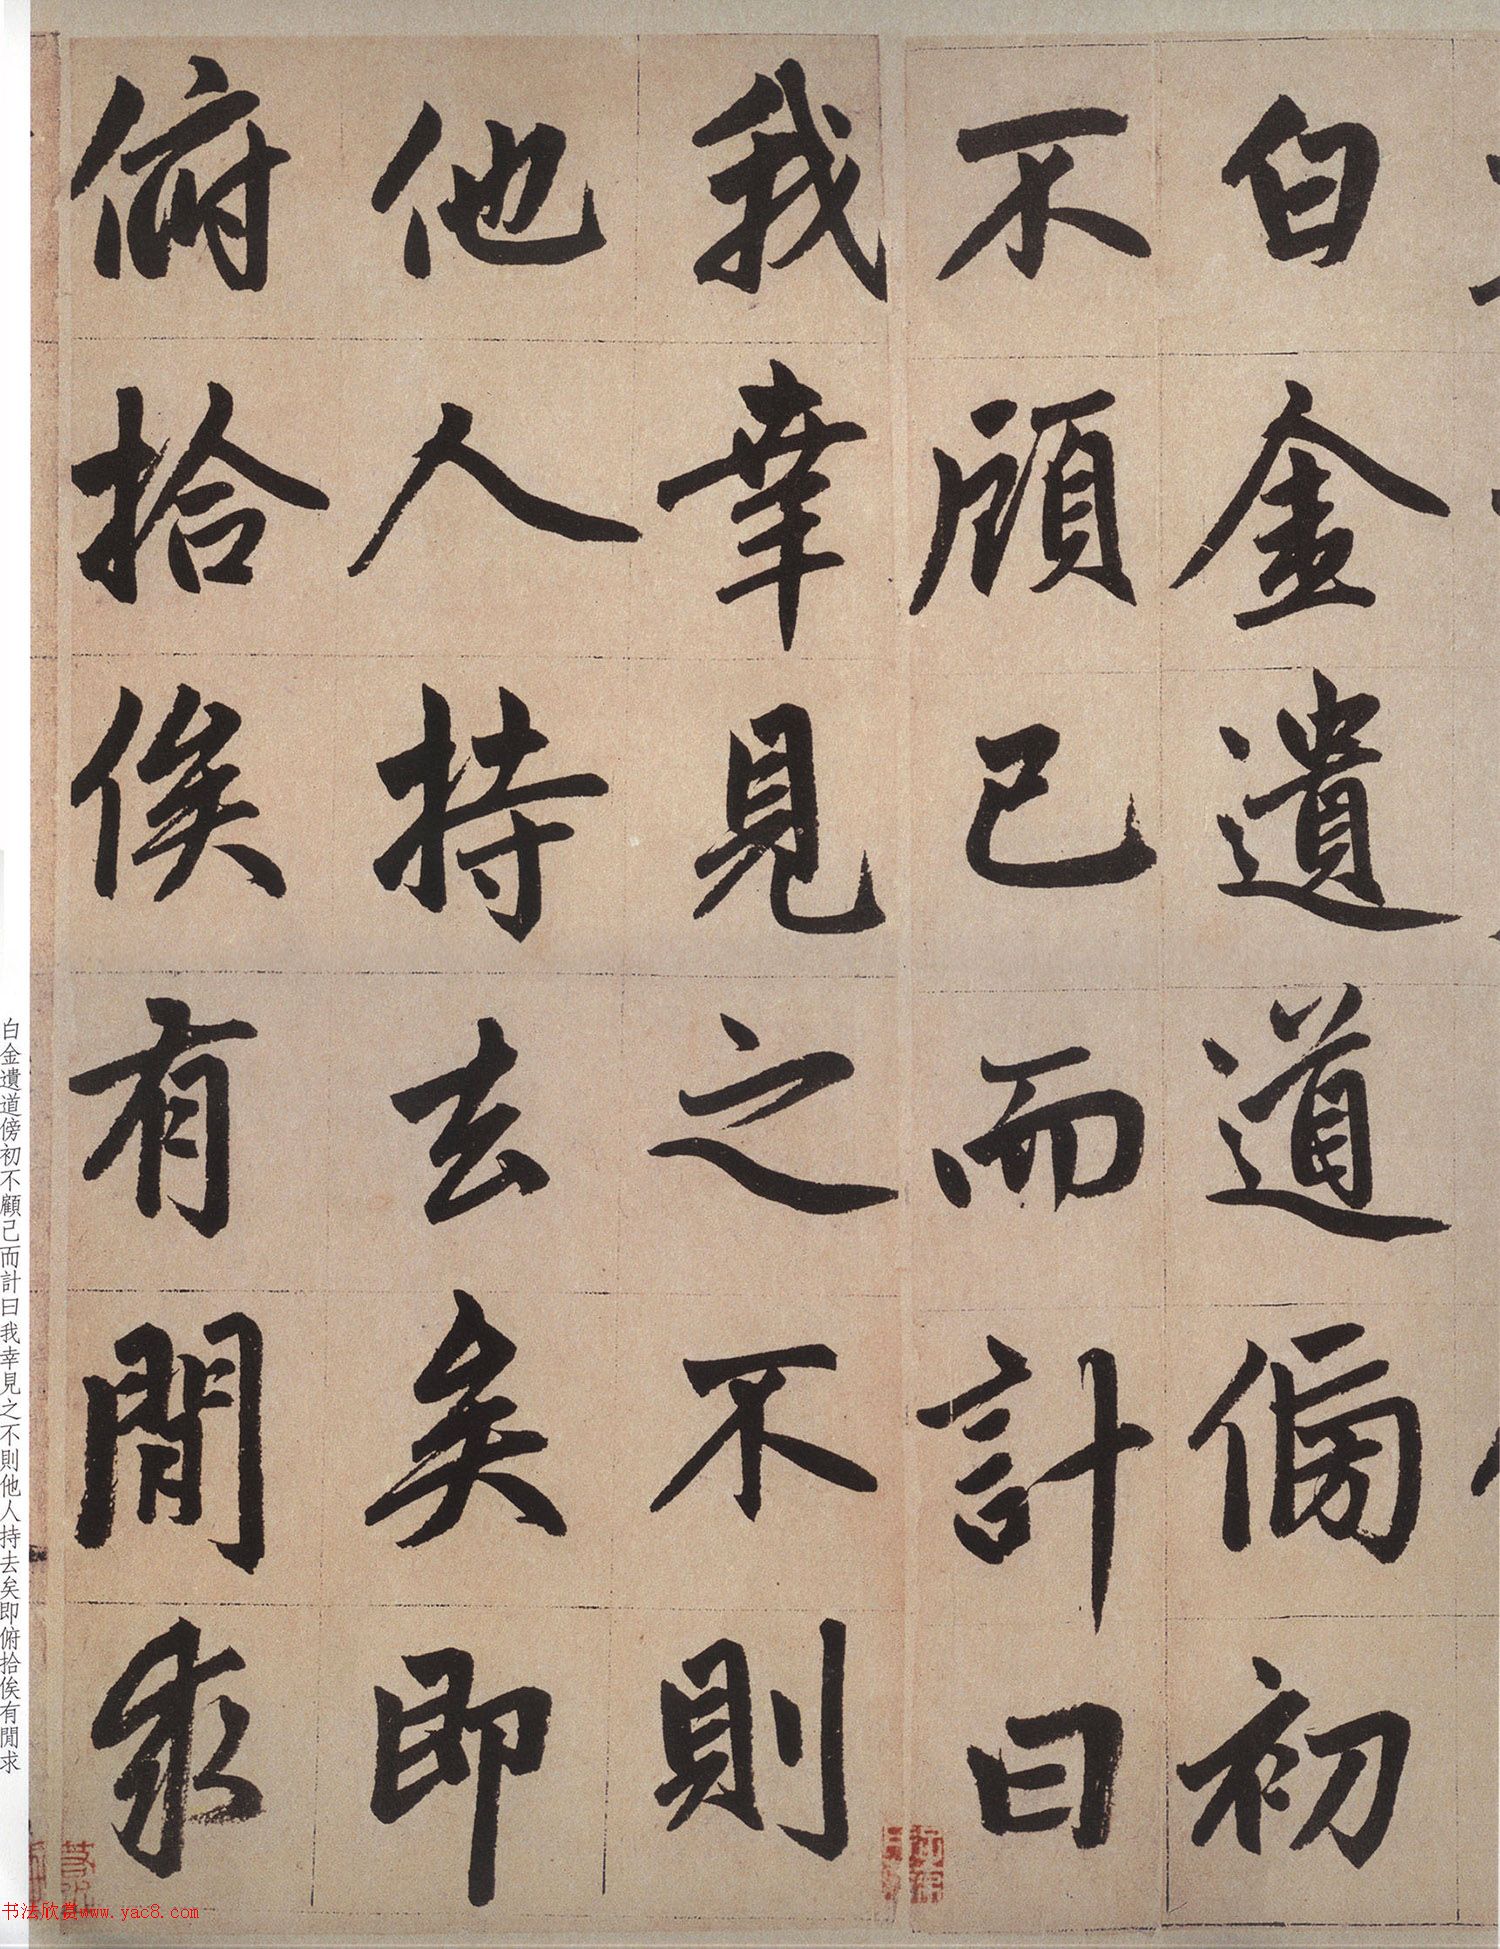 白金遺道傍初
不顧己而計曰
我幸見之不則
他人持去矣即
俯拾俟有閒求
白金遺道傍初不顧己而計曰我幸見之不則他人持去矣即俯拾俟有閒求
书法欣赏www.yac8.com